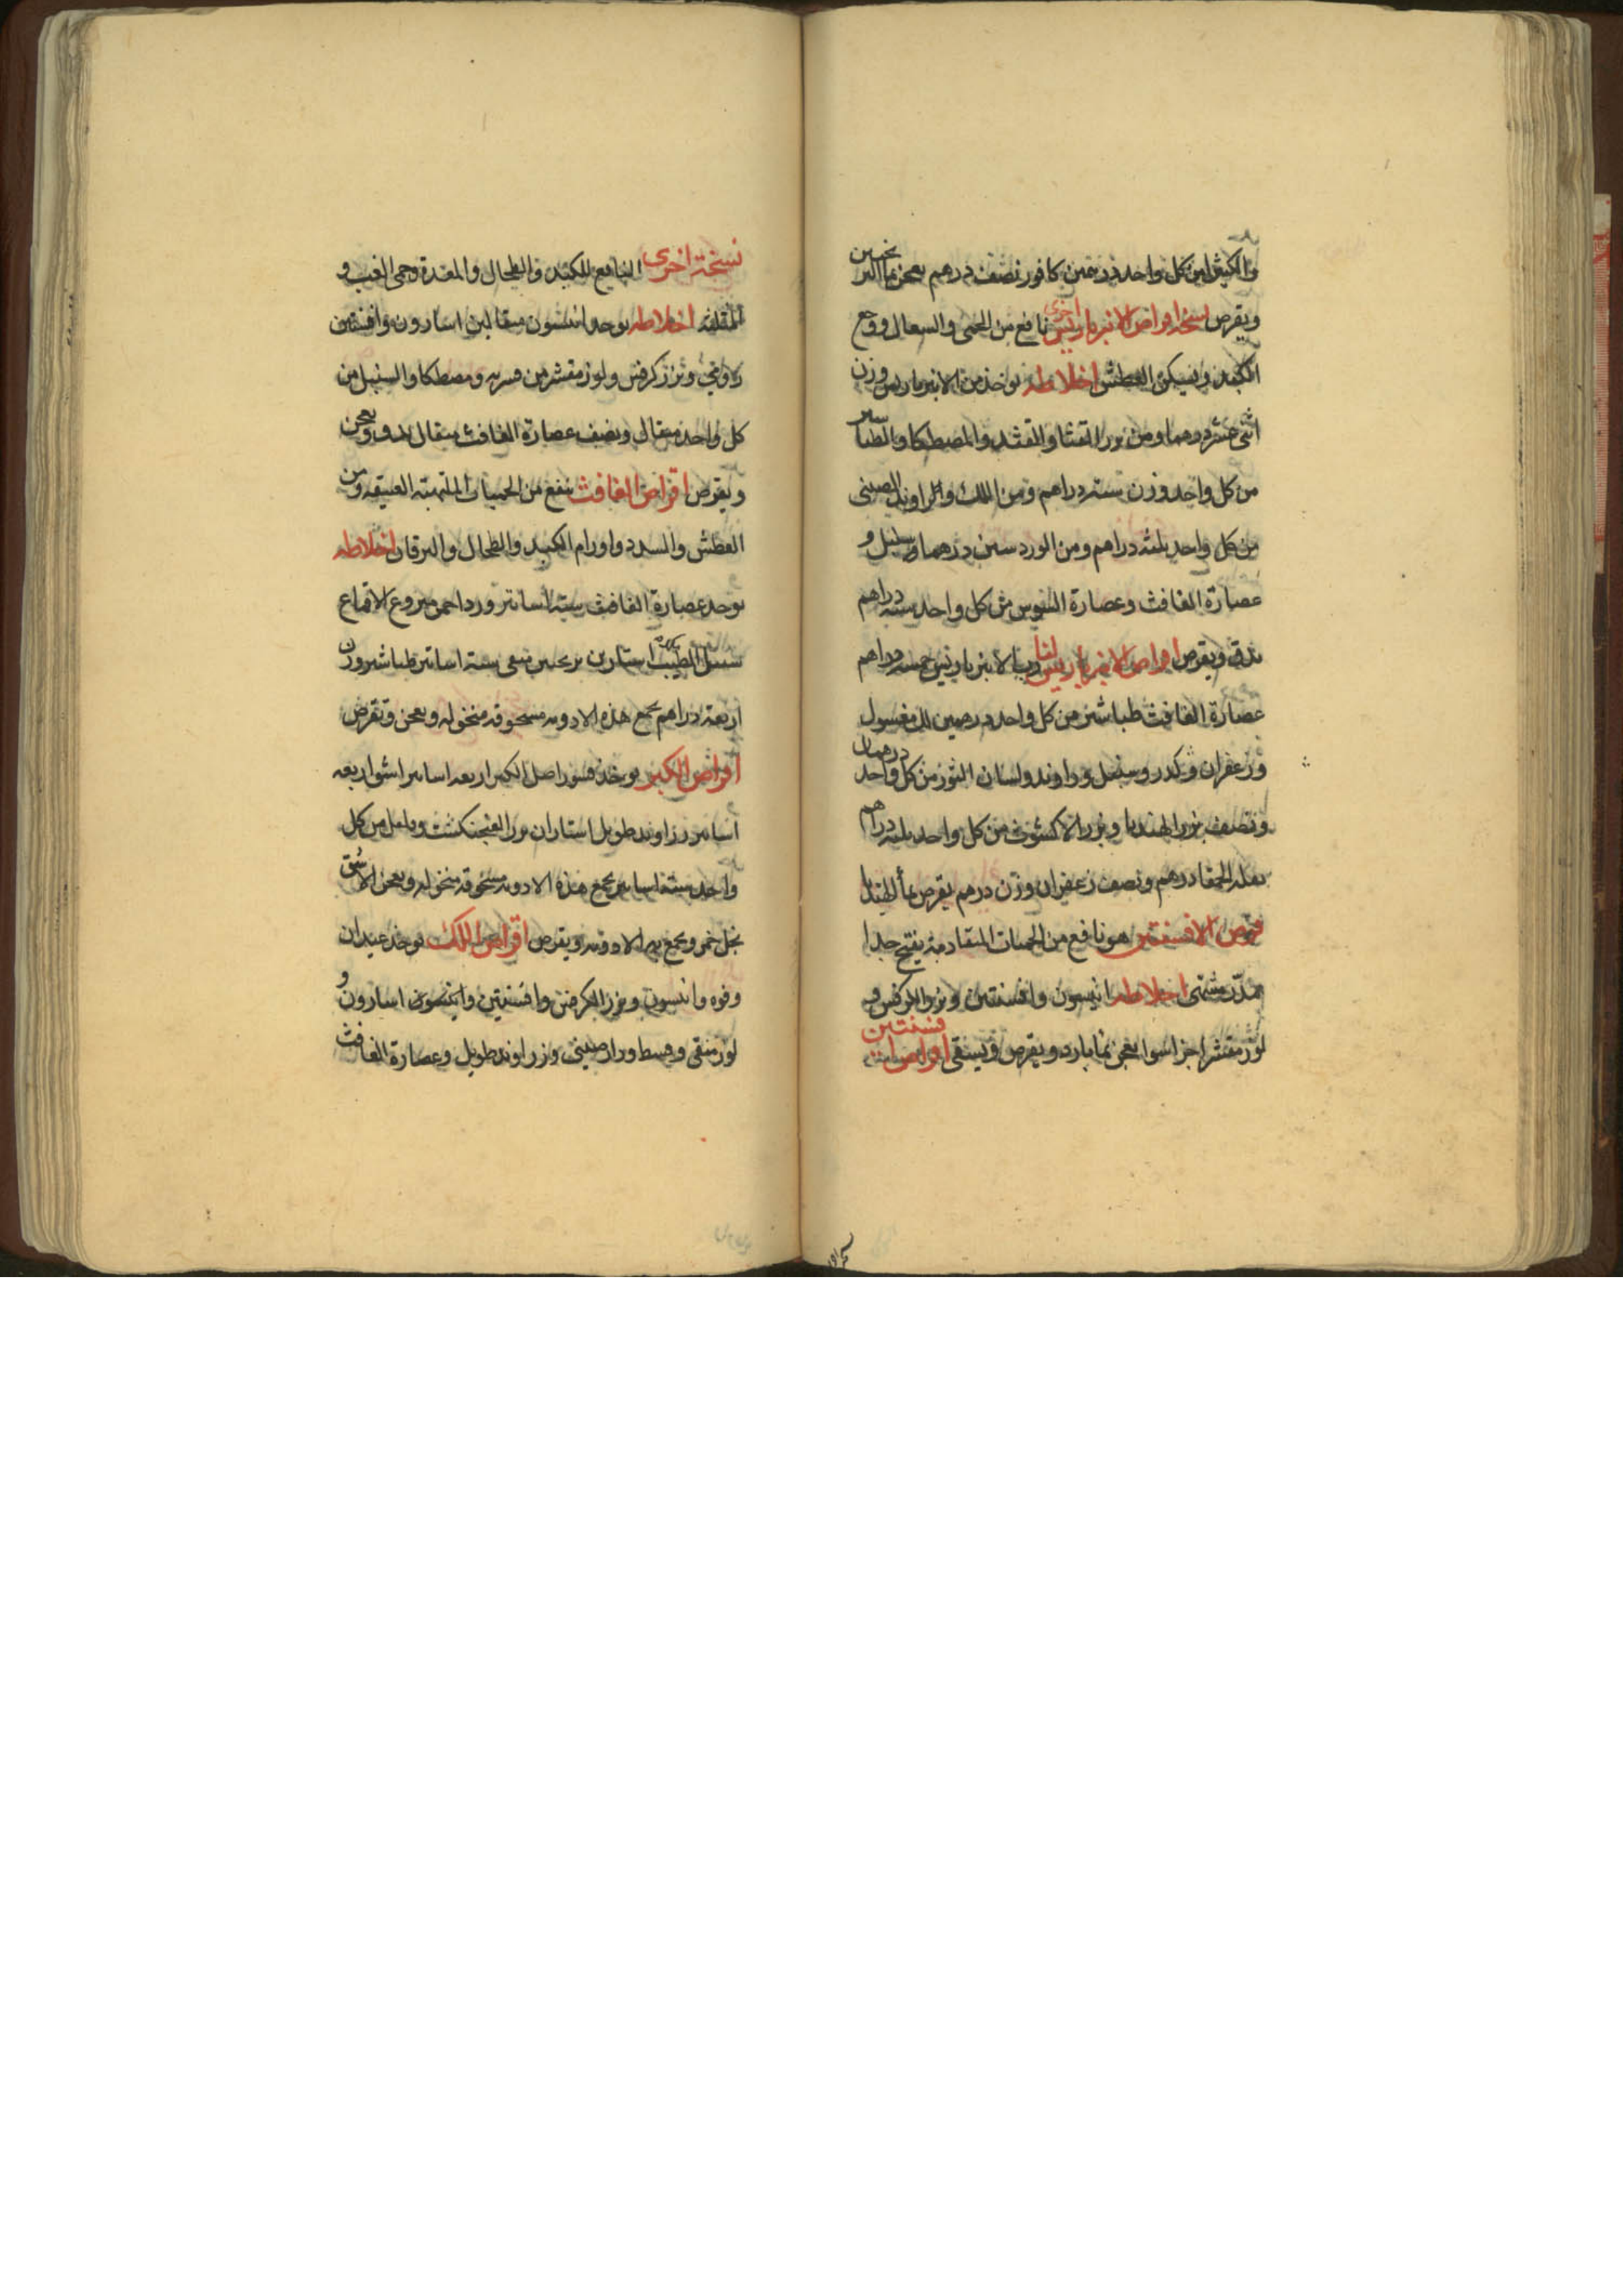 والكثيرا من كل واحد درهمين كافور نصف درهم يعجن بماء الترنجبين
ويقرص نسخة اقراص الانبرباريس اخرى نافع من الحمى والسعال ووجع
الكبد ويسكن العطش اخلاطه يوخذ من الانبرباريس وزن
اثنى عشر درهما ومن بزر القثا والقثد والمصطكا والطباشير
من كل واحد وزن ستة دراهم ومن اللك والراوند الصينى
من كل واحد ثلثة دراهم ومن الورد ستين درهما وسنبل و
عصارة الغافث وعصارة السوس من كل واحد ستة دراهم
يدق ويقرص اقراص الانبرباريس لنا رب الانبرباريس خمسة دراهم
عصارة الغافث طباشير من كل واحد درهمين لك مغسول
وزعفران وكندر وسنبل وراوند ولسان الثور من كل واحد درهمان
ونصف بزر الهندبا وبزر الاكشوث من كل واحد ثلثة دراهم
بقلة الحمقا درهم ونصف زعفران وزن درهم يقرص بماء الهندبا
قرص الافسنتين هو نافع من الحميات المتقادمة يفتح جدا
مدر مشهى اخلاطه انيسون وافسنتين وبزر الكرفس و
لوز مقشر اجزا سوا يعجن بما بارد ويقرص ويسقى اقراص افسنتين
نسخة اخرى النافع للكبد والطحال والمعدة وحمى الغب و
المثلثة اخلاطه يوخذ انيسون مثقالين اسارون وافسنتين
وبزر كرفس ولوز مقشر من قشره ومصطكا والسنبل من
كل واحد مثقال ونصف عصارة الغافث مثقال يدق ويعجن
ويقرص اقراص الغافث ينفع من الحميات الملتهبة العتيقة ومن
العطش والسدد واورام الكبد والطحال واليرقان اخلاطه
يوخذ عصارة الغافث ستة اساتير ورد احمر منزوع الاقماع
سنبل الطيب استارين ترنجبين منقى ستة اساتير طباشير وزن
اربعة دراهم يجمع هذه الادويه مسحوقه منخوله ويعجن ويقرص
اقراص الكبر يوخذ قشور اصل الكبر اربعة اساتير اشق اربعة
اساتير زراوند طويل استاران بزر الفنجنكشت وفلفل من كل
واحد ستة اساتير يجمع هذه الادويه مسحوقه منخوله ويعجن الاشق
بخل خمر ويجمع به الادويه ويقرص اقراص اللك يوخذ عيدان
وفوه وانيسون وبزر الكرفس وافسنتين وانيسون اسارون و
لوز منقى وقسط ودارصينى وزراوند طويل وعصارة الغافث